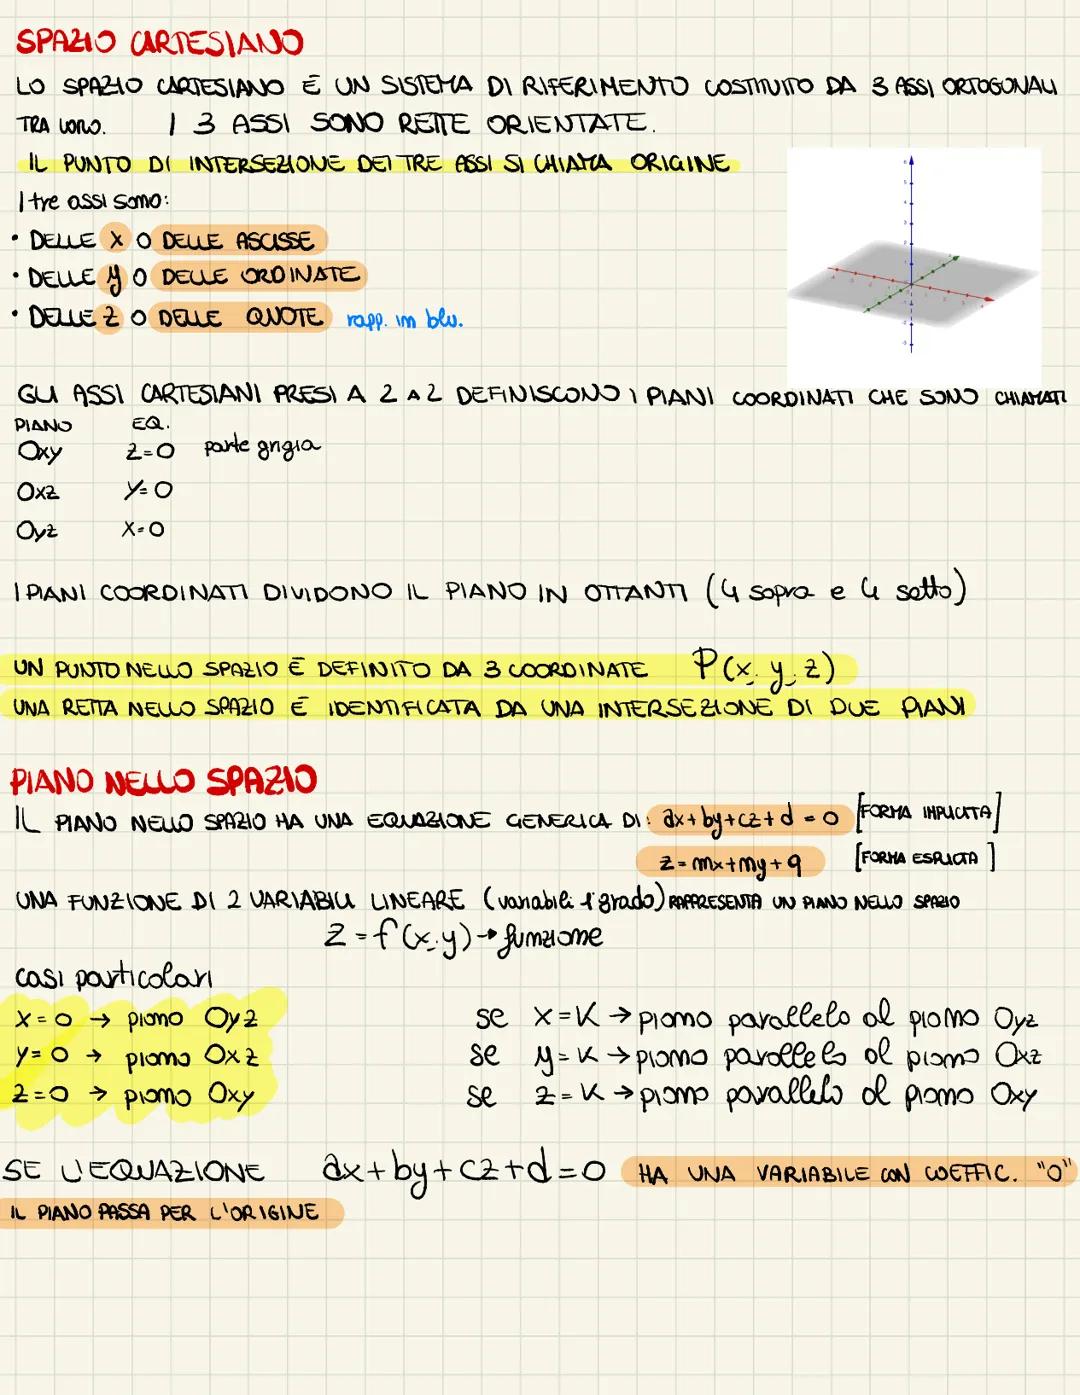 SPAZIO CARTESIANO
LO SPAZIO CARTESIANO È UN SISTEMA DI RIFERIMENTO COSTITUITO DA 3 ASSI ORTOGONALI
TRA LORO. I 3 ASSI SONO RETTE ORIENTATE.
IL PUNTO DI INTERSEZIONE DEI TRE ASSI SI CHIAMA ORIGINE
I tre assi sono:
• DELLE X O DELLE ASCISSE
• DELLE y O DELLE ORDINATE
• DELLE Z O DELLE QUOTE rapp. in blu.
GLI ASSI CARTESIANI PRESI A 2 A 2 DEFINISCONO I PIANI COORDINATI CHE SONO CHIAMATI
PIANO EQ.
Oxy z=0 parte grigia
Oxz y=0
Oyz x=0
I PIANI COORDINATI DIVIDONO IL PIANO IN OTTANTI (4 sopra e 4 sotto)
UN PUNTO NELLO SPAZIO È DEFINITO DA 3 COORDINATE P(x, y, z)
UNA RETTA NELLO SPAZIO È IDENTIFICATA DA UNA INTERSEZIONE DI DUE PIANI
PIANO NELLO SPAZIO
IL PIANO NELLO SPAZIO HA UNA EQUAZIONE GENERICA DI: ax+by+cz+d=0 [FORMA IMPLICITA]
z=mx+my+q [FORMA ESPLICITA]
UNA FUNZIONE DI 2 VARIABILI LINEARE (variabili 1°grado) RAPPRESENTA UN PIANO NELLO SPAZIO
z=f(x,y)→funzione
casi particolari
x=0 → piano Oyz se x=K→piano parallelo al piano Oyz
y=0 → piano Oxz se y=K→piano parallelo al piano Oxz
z=0 → piano Oxy se z=K→piano parallelo al piano Oxy
SE L'EQUAZIONE ax+by+cz+d=0 HA UNA VARIABILE CON COEFFIC. "0"
IL PIANO PASSA PER L'ORIGINE